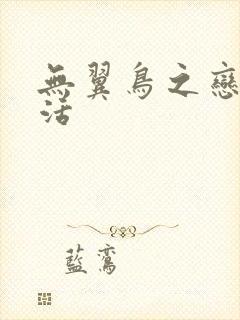 無翼鳥之戀
活
藍鸞